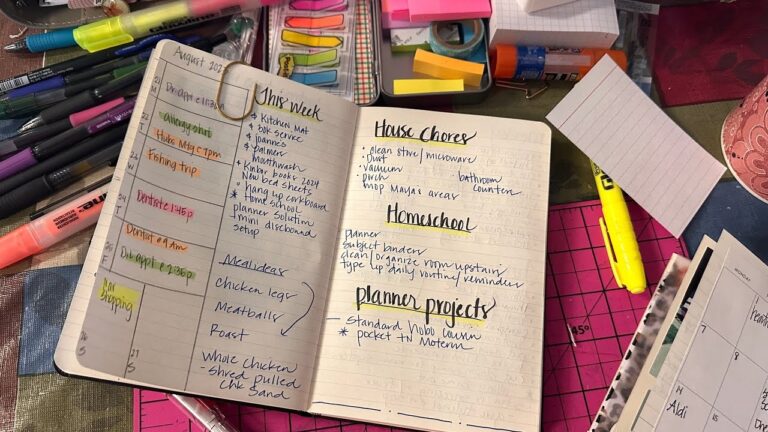 August 202
21
M
Dr. appt e 11:30am
22
T
allergy shot
Hubs Mtg e 7pm
Fishing trip
24
Dentist e 1:45p
25
Dentist e 9am
Dr. appt e 2:30pm
Bar
Shopping
26
S
27
S
This Week
$ Kitchen Mat
$ book service
$ Joanne's
$ palmers
mouthwash
Kinbor book 2024
New bed sheets
hang up corkboard
* Homeschool
planner solution
mini discbound
setup
Meal ideas
Chicken legs
Meatballs
Roast
Whole Chicken
- shred pulled
Chk Sand
House Chores
clean stove/microwave
Dust
vacuum
porch
mop Maya's areas
bathroom
counters
Homeschool
planner
Subject binders
clean/organize room upstair
type up daily routine/reminders
planner projects
- Standard hobo cousin
* pocket TN Moterm
45°
MONDAY
7
8
14
Aldi
15